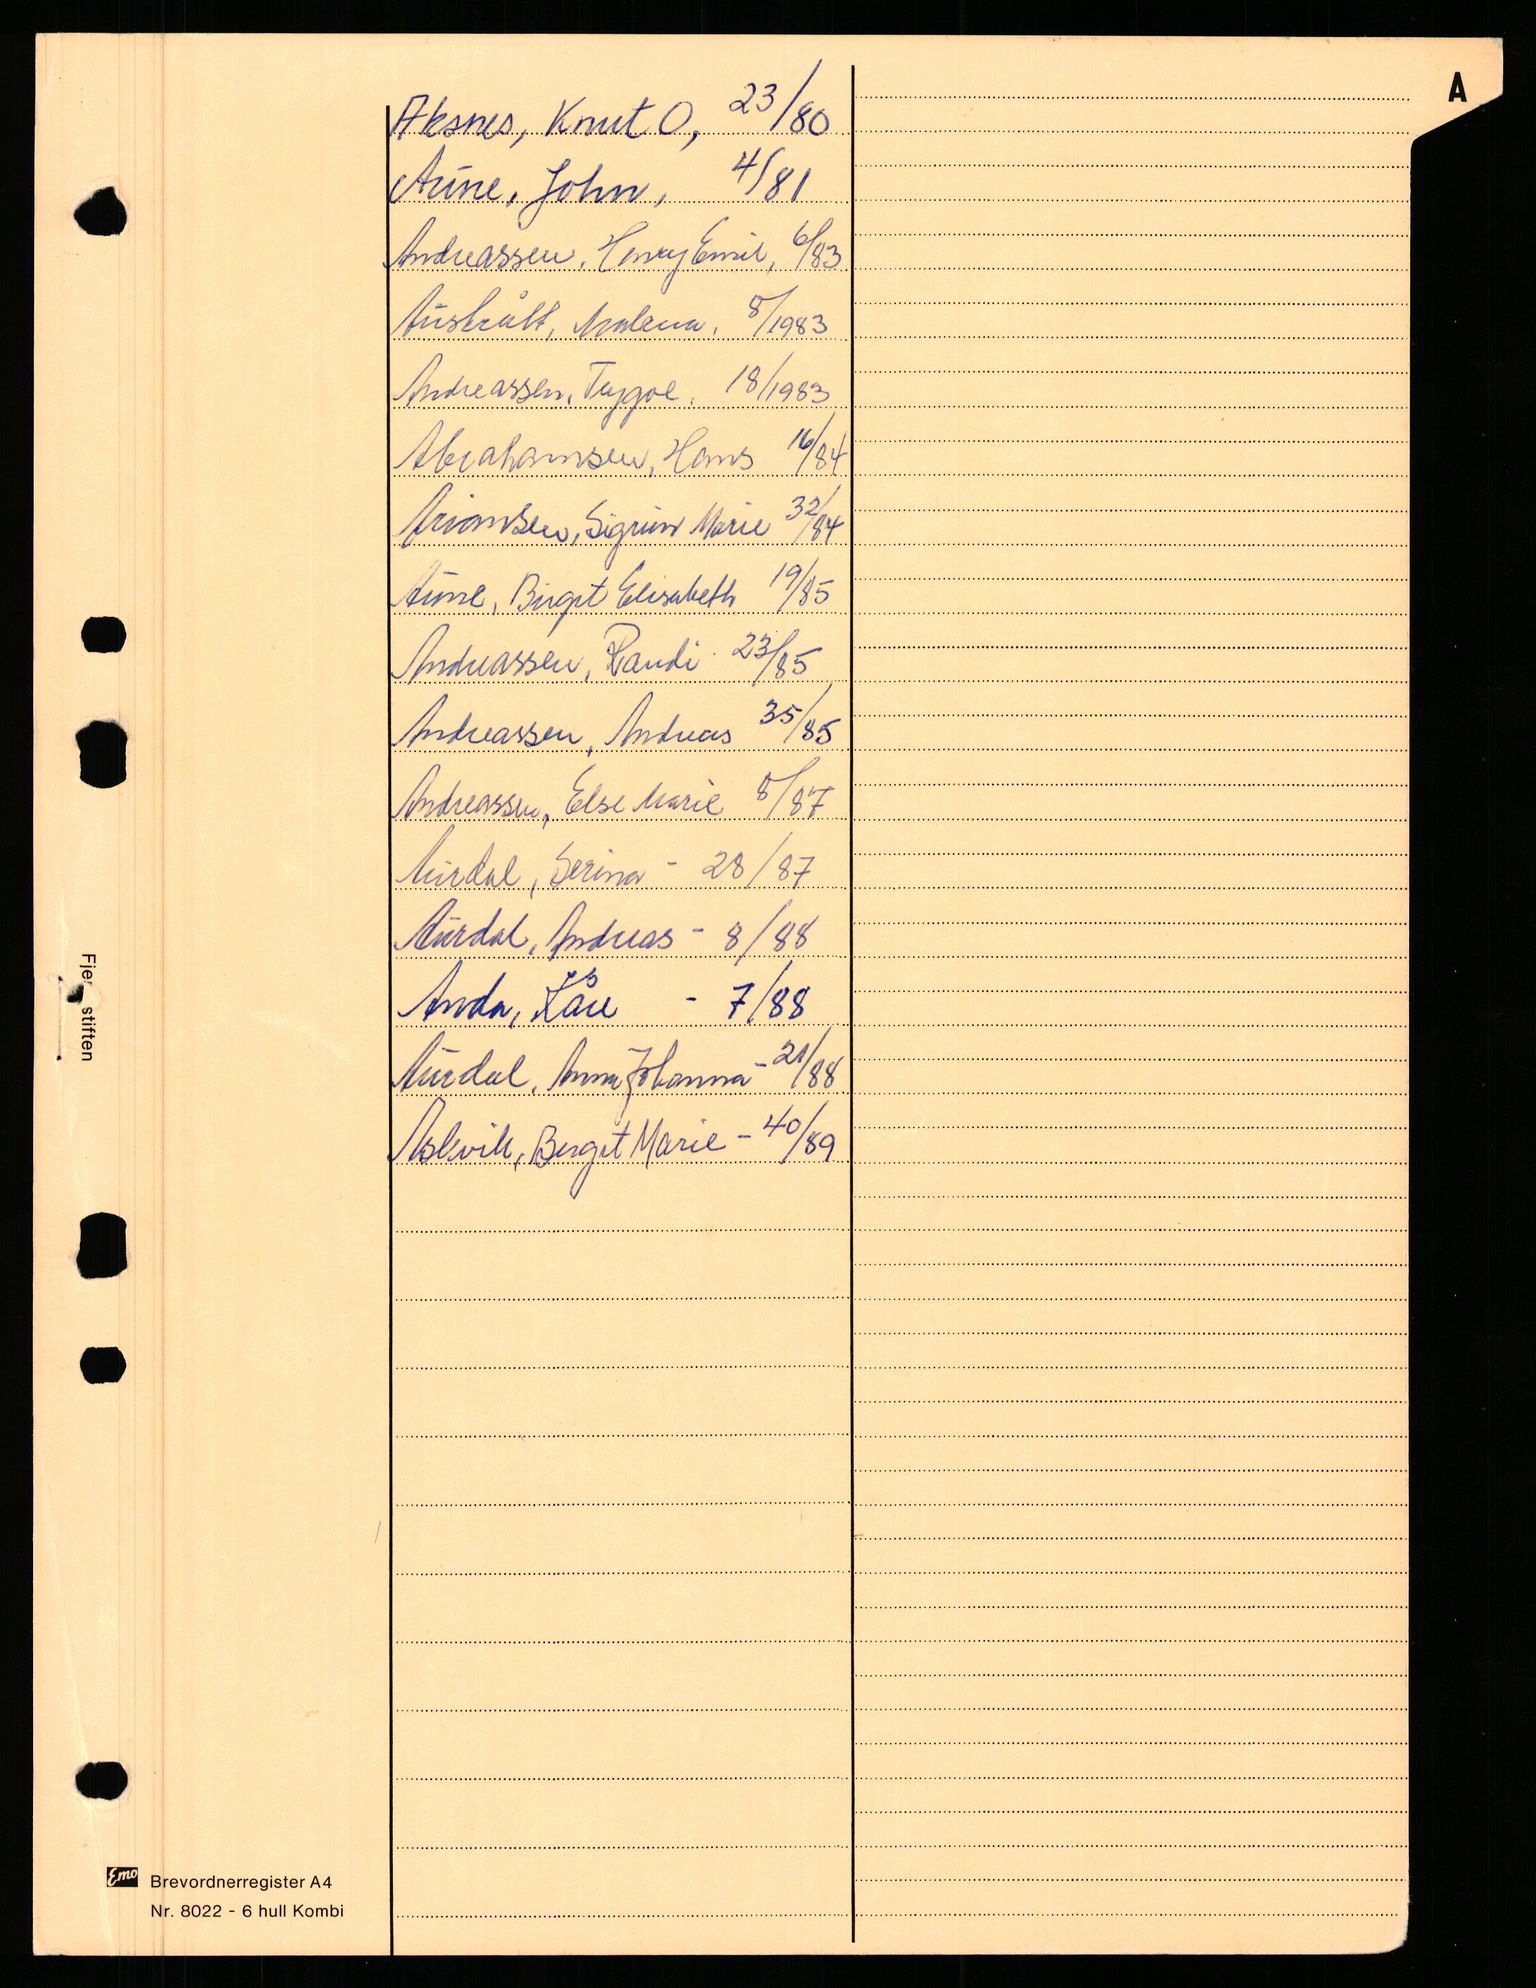 A
Aksnes, Knut O, 23/80
Aune, John, 4/81
Andreassen, Henry Emil, 6/83
Austrått, Malena, 8/1983
Andreassen, Trygve. 18/1983
Abrahamsen, Hans 16/84
Ariansen, Sigrun Marie 32/84
Aune, Birgit Elisabeth 19/85
Andreassen, Randi 23/85
Andreassen, Andreas 35/85
Andreassen, Else Marie 8/87
Aurdal, Serina - 28/87
Aurdal, Andreas - 8/88
Anda, Kåre - 7/88
Aurdal, Anna Johanna - 21/88
Aslevik, Bergit Marie - 40/89
stiften
Emo Brevordnerregister A4
Nr. 8022 - 6 hull Kombi